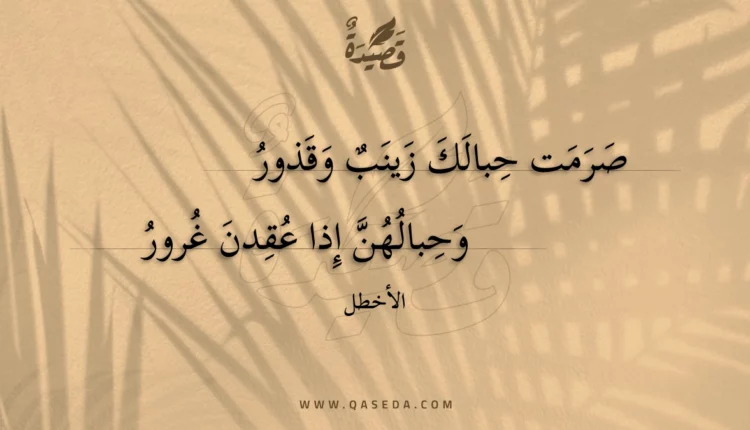 قَصِيْدَةٌ
صَرَمَت حِبالَكَ زَينَبٌ وَقَذورُ
وَحِبالُهُنَّ إِذا عُقِدنَ غُرورُ
الأخطل
WWW.QASEDA.COM